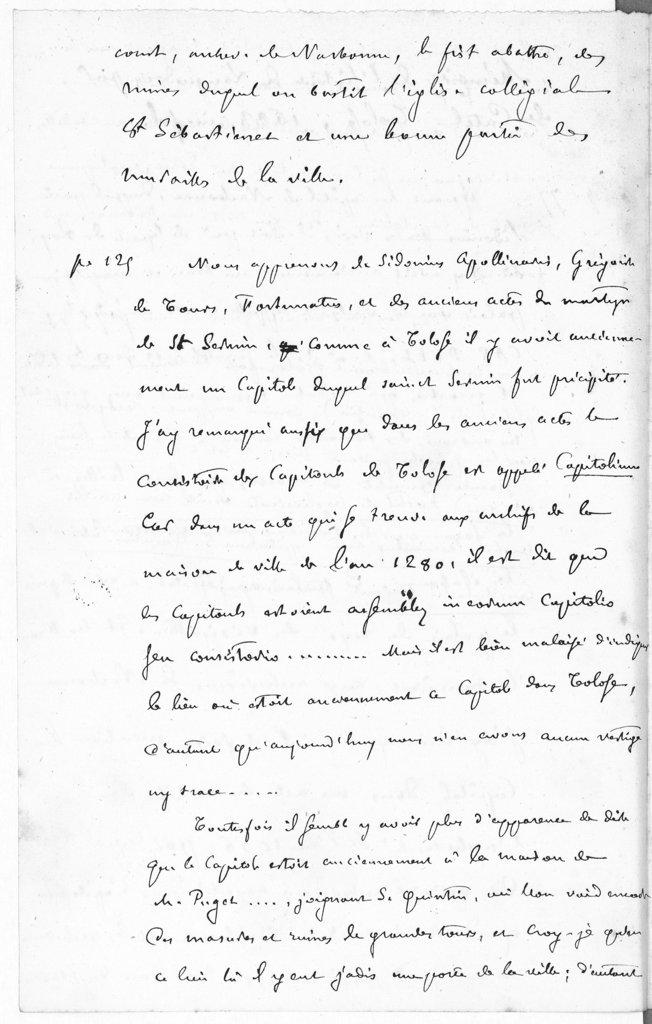 court, archev. de Narbonne, le fist abattre, des
ruines duquel on bastit l'église collégiale
St Sébastien et une bonne partie des
murailles de la ville.
pe 125 Nous apprenons de Sidonius Apollinaris, Grégoire
de Tours, Fortunatus, et des anciens actes du martyre
de St Sernin, comme à Tolose il y avoit ancienne-
ment un Capitole duquel sainct Sernin fut précipité.
J'ay remarqué aussy que dans les anciens actes le
Consistoire des Capitouls de Tolose est appelé Capitolium
Car dans un acte qui se trouve aux archifs de la
maison de ville de l'an 1280, il est dit que
les Capitouls estoient assemblez in eorum Capitolio
seu consistorio .......... Mais il est bien malaisé d'indiquer
le lieu où estoit anciennement ce Capitole dans Tolose,
d'autant qu'aujourd'huy nous n'en avons aucun vestige
ny trace......
Toutesfois il semble y avoir plus d'apparence de dire
que le Capitole estoit anciennement à la maison de
M. Puget ...., joignant St Quintin, où l'on void encore
des masures et ruines de grandes tours, et croy-je qu'en
ce lieu là il y eut jadis une porte de la ville; d'autant